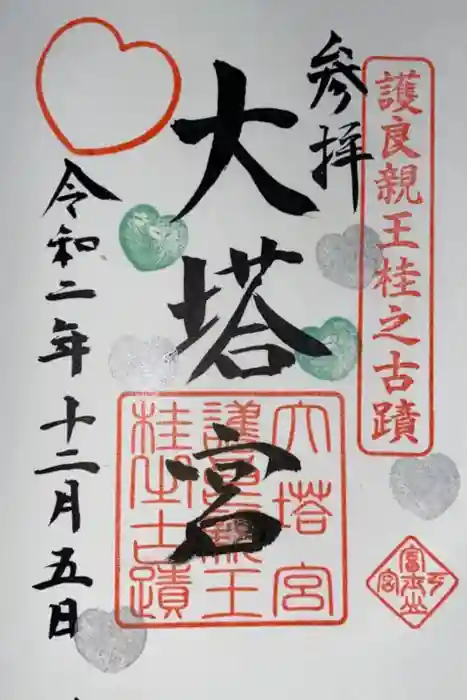 護良親王桂之古蹟
参拝
大塔宮
令和二年十二月五日
大塔宮
護良親王
桂之古蹟